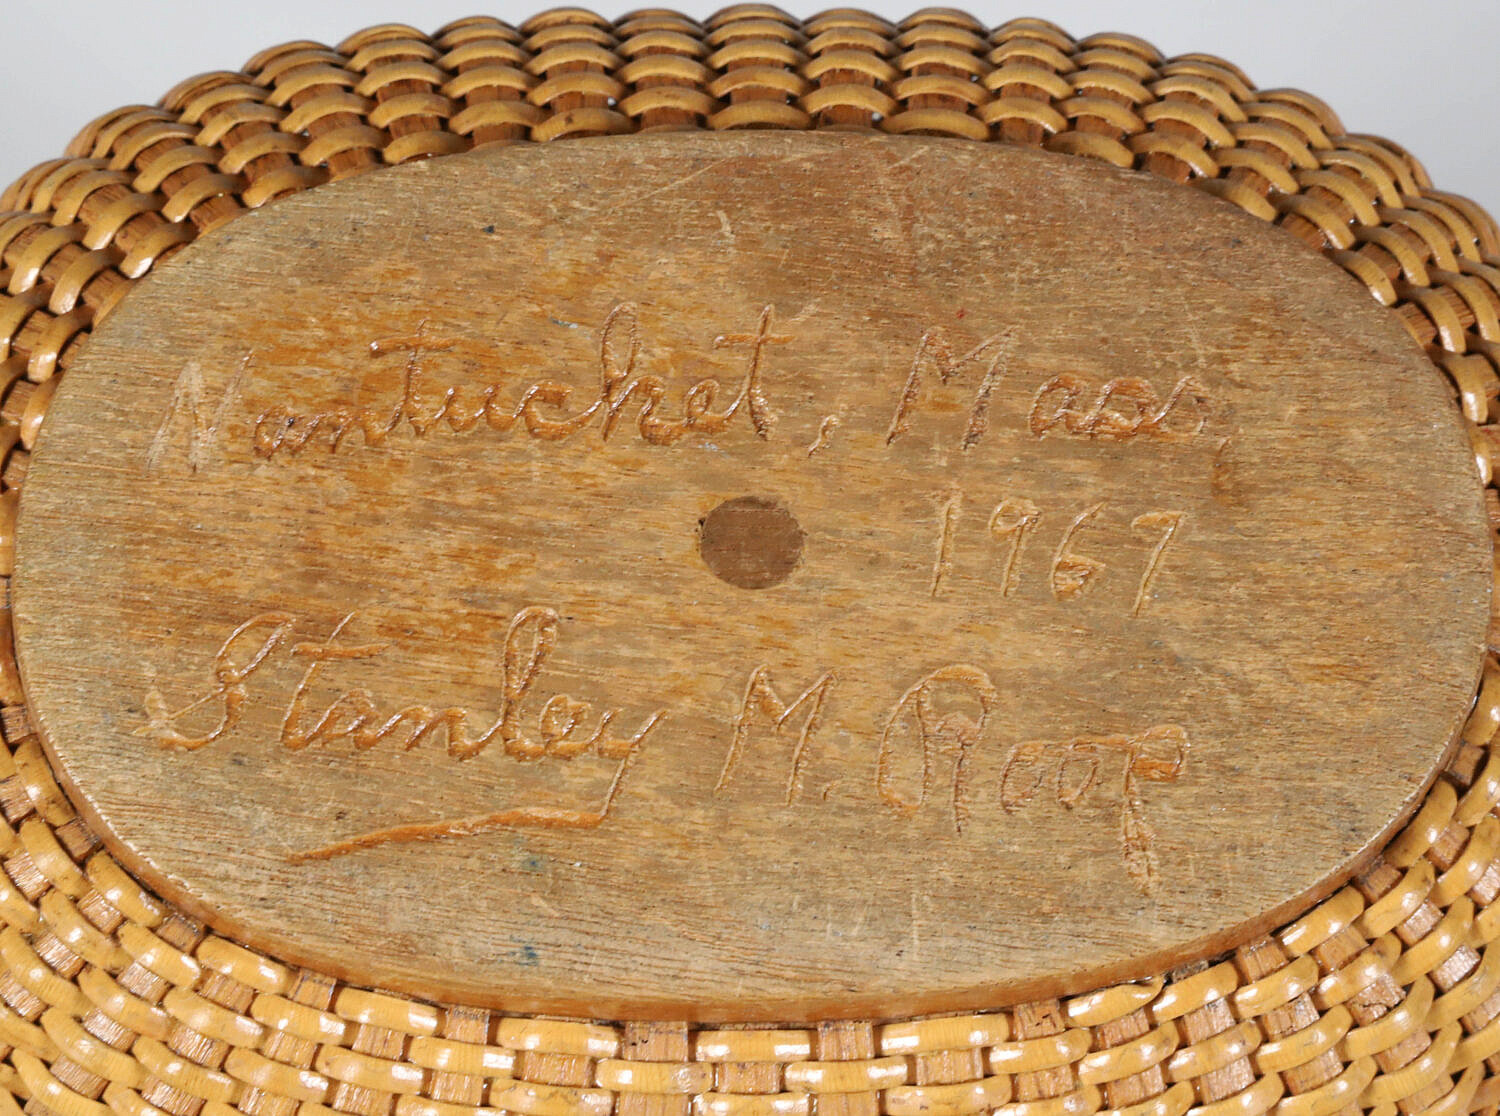 Nantucket, Mass,
1967
Stanley M. Roop